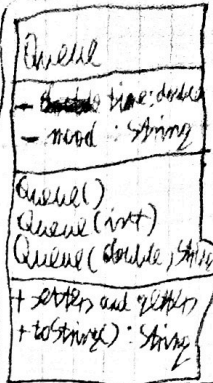 Queue
- time: double
- mood : String
Queue()
Queue(int)
Queue(double, String
+ setters and getters
+ toString() : String